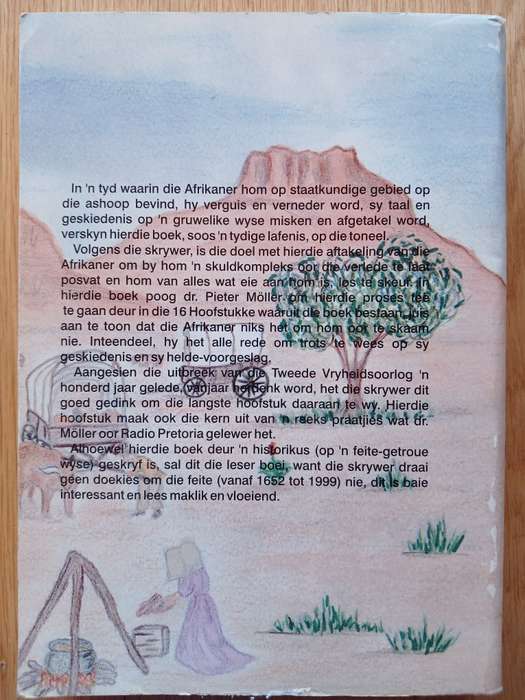 In 'n tyd waarin die Afrikaner hom op staatkundige gebied op
die ashoop bevind, hy verguis en verneder word, sy taal en
geskiedenis op 'n gruwelike wyse misken en afgetakel word,
verskyn hierdie boek, soos 'n tydige lafenis, op die toneel.
Volgens die skrywer, is die doel met hierdie aftakeling van die
Afrikaner om by hom 'n skuldkompleks oor die verlede te laat
posvat en hom van alles wat eie aan hom is, los te skeur. In
hierdie boek poog dr. Pieter Möller om hierdie proses tee
te gaan deur in die 16 Hoofstukke waaruit die boek bestaan, juis
aan te toon dat die Afrikaner niks het om hom oor te skaam
nie. Inteendeel, hy het alle rede om trots te wees op sy
geskiedenis en sy helde-voorgeslag.
Aangesien die uitbreek van die Tweede Vryheidsoorlog 'n
honderd jaar gelede, vanjaar herdenk word, het die skrywer dit
goed gedink om die langste hoofstuk daaraan te wy. Hierdie
hoofstuk maak ook die kern uit van 'n reeks praatjies wat dr.
Möller oor Radio Pretoria gelewer het.
Alhoewel hierdie boek deur 'n historikus (op 'n feite-getroue
wyse) geskryf is, sal dit die leser boei, want die skrywer draai
geen doekies om die feite (vanaf 1652 tot 1999) nie, dit is baie
interessant en lees maklik en vloeiend.